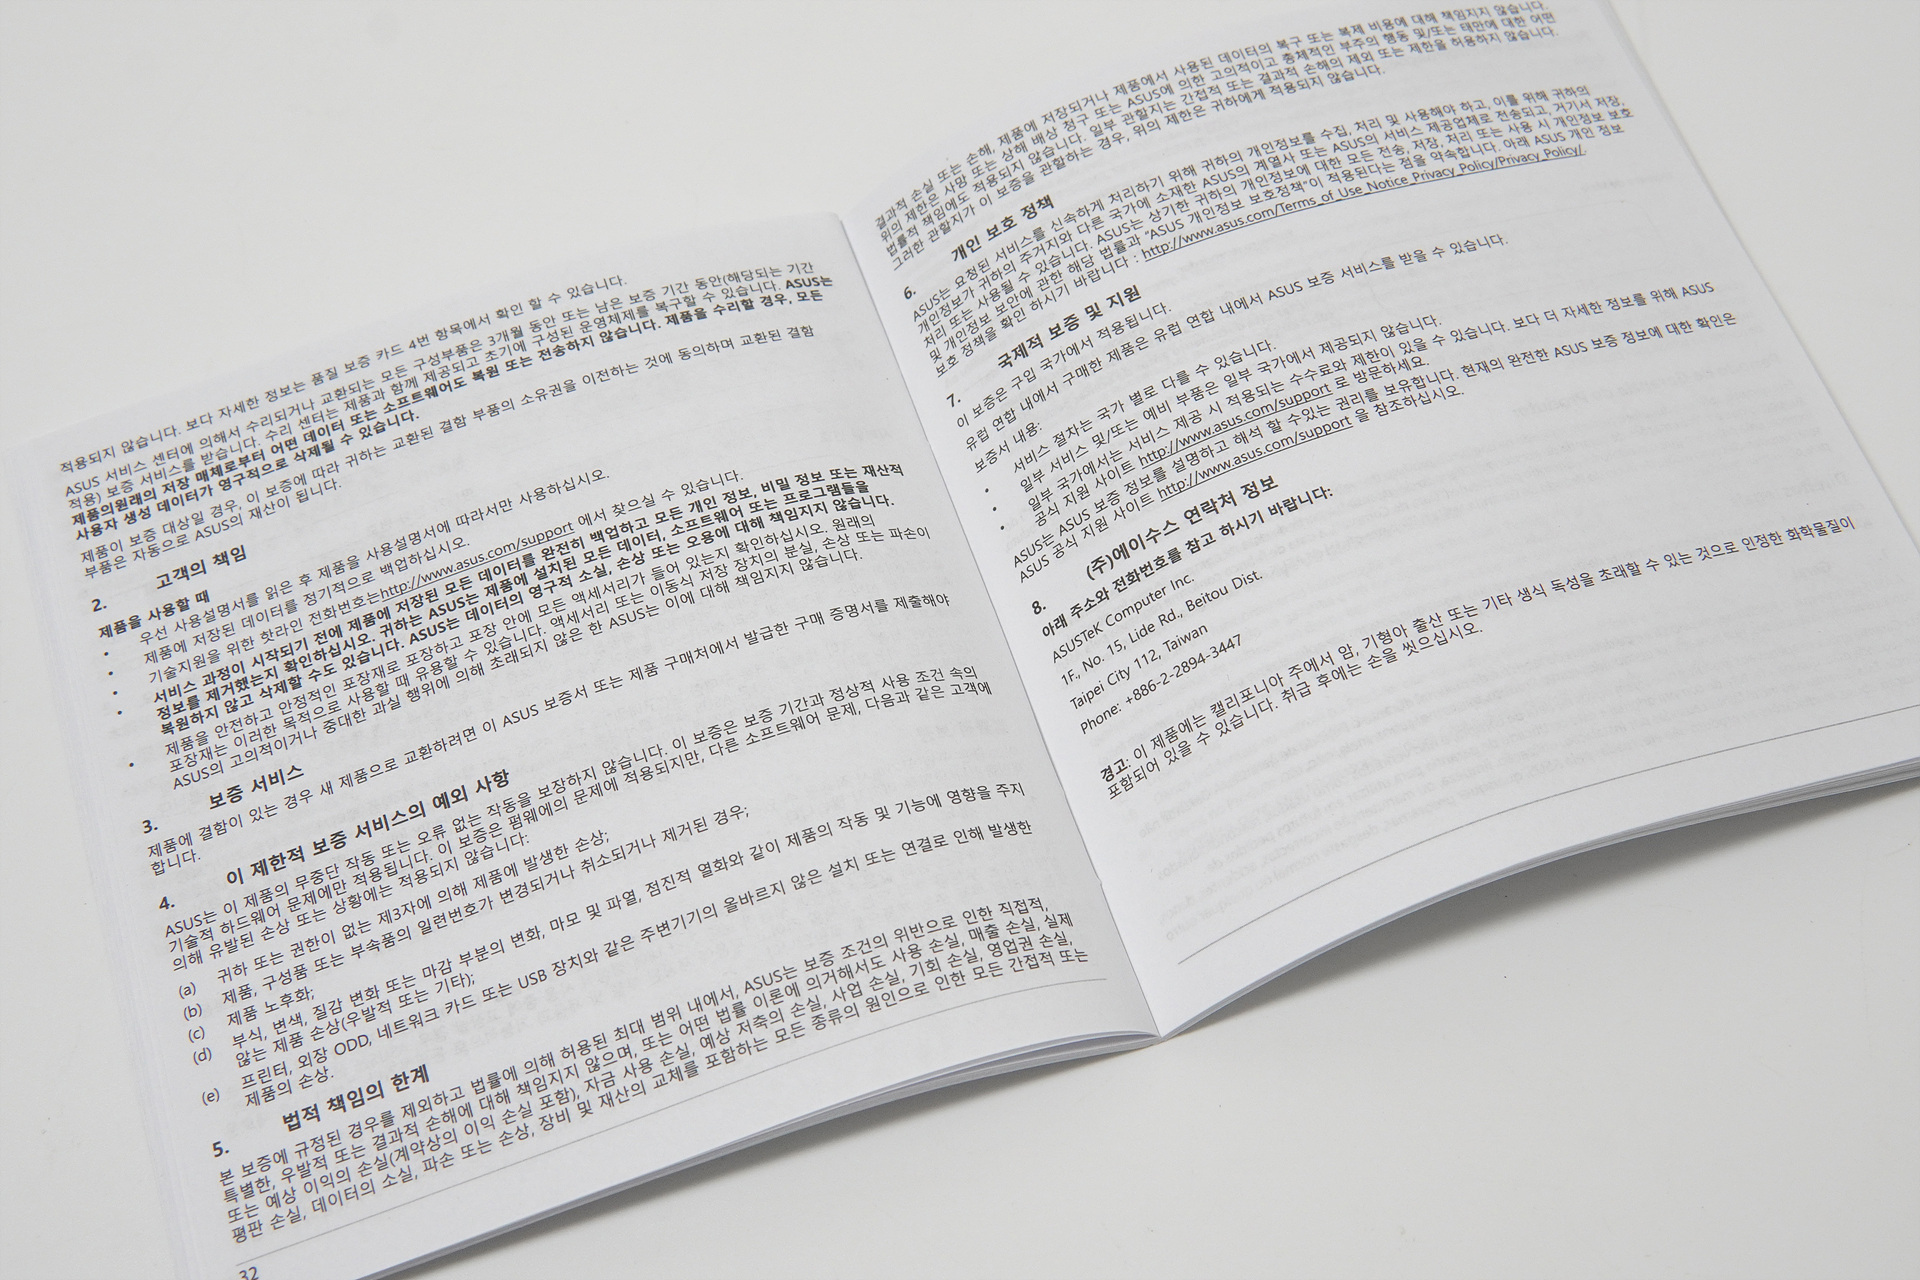 적용되지 않습니다. 보다 자세한 정보는 품질 보증 카드 4번 항목에서 확인 할 수 있습니다.
ASUS 서비스 센터에 의해서 수리되거나 교환되는 모든 구성부품은 3개월 동안 또는 남은 보증 기간 동안(해당되는 기간
적용) 보증 서비스를 받습니다. 수리 센터는 제품과 함께 제공되고 초기에 구성된 운영체제를 복구할 수 있습니다. ASUS는
제품의원래의 저장 매체로부터 어떤 데이터 또는 소프트웨어도 복원 또는 전송하지 않습니다. 제품을 수리할 경우, 모든
사용자 생성 데이터가 영구적으로 삭제될 수 있습니다.
제품이 보증 대상일 경우, 이 보증에 따라 귀하는 교환된 결함 부품의 소유권을 이전하는 것에 동의하며 교환된 결함
부품은 자동으로 ASUS의 재산이 됩니다.
2. 고객의 책임
제품을 사용할 때
• 우선 사용설명서를 읽은 후 제품을 사용설명서에 따라서만 사용하십시오.
• 제품에 저장된 데이터를 정기적으로 백업하십시오.
• 기술지원을 위한 핫라인 전화번호는http://www.asus.com/support 에서 찾으실 수 있습니다.
• 서비스 과정이 시작되기 전에 제품에 저장된 모든 데이터를 완전히 백업하고 모든 개인 정보, 비밀 정보 또는 재산적
정보를 제거했는지 확인하십시오. 귀하는 ASUS는 제품에 설치된 모든 데이터, 소프트웨어 또는 프로그램들을
복원하지 않고 삭제할 수도 있습니다. ASUS는 데이터의 영구적 소실, 손상 또는 오용에 대해 책임지지 않습니다.
• 제품을 안전하고 안정적인 포장재로 포장하고 포장 안에 모든 액세서리가 들어 있는지 확인하십시오. 원래의
포장재는 이러한 목적으로 사용할 때 유용할 수 있습니다. 액세서리 또는 이동식 저장 장치의 분실, 손상 또는 파손이
ASUS의 고의적이거나 중대한 과실 행위에 의해 초래되지 않은 한 ASUS는 이에 대해 책임지지 않습니다.
3. 보증 서비스
제품에 결함이 있는 경우 새 제품으로 교환하려면 이 ASUS 보증서 또는 제품 구매처에서 발급한 구매 증명서를 제출해야
합니다.
4. 이 제한적 보증 서비스의 예외 사항
ASUS는 이 제품의 무중단 작동 또는 오류 없는 작동을 보장하지 않습니다. 이 보증은 보증 기간과 정상적 사용 조건 속의
기술적 하드웨어 문제에만 적용됩니다. 이 보증은 펌웨에의 문제에 적용되지만, 다른 소프트웨어 문제, 다음과 같은 고객에
의해 유발된 손상 또는 상황에는 적용되지 않습니다:
(a) 귀하 또는 권한이 없는 제3자에 의해 제품에 발생한 손상;
(b) 제품, 구성품 또는 부속품의 일련번호가 변경되거나 취소되거나 제거된 경우;
(c) 제품 노후화;
(d) 부식, 변색, 질감 변화 또는 마감 부분의 변화, 마모 및 파열, 점진적 열화와 같이 제품의 작동 및 기능에 영향을 주지
않는 제품 손상(우발적 또는 기타);
(e) 프린터, 외장 ODD, 네트워크 카드 또는 USB 장치와 같은 주변기기의 올바르지 않은 설치 또는 연결로 인해 발생한
제품의 손상.
5. 법적 책임의 한계
본 보증에 규정된 경우를 제외하고 법률에 의해 허용된 최대 범위 내에서, ASUS는 보증 조건의 위반으로 인한 직접적,
특별한, 우발적 또는 결과적 손해에 대해 책임지지 않으며, 또는 어떤 법률 이론에 의거해서도 사용 손실, 매출 손실, 실제
또는 예상 이익의 손실(계약상의 이익 손실 포함), 자금 사용 손실, 예상 저축의 손실, 사업 손실, 기회 손실, 영업권 손실,
평판 손실, 데이터의 소실, 파손 또는 손상, 장비 및 재산의 교체를 포함하는 모든 종류의 원인으로 인한 모든 간접적 또는
32
결과적 손실 또는 손해, 제품에 저장되거나 제품에서 사용된 데이터의 복구 또는 복제 비용에 대해 책임지지 않습니다.
위의 제한은 사망 또는 상해 배상 청구 또는 ASUS에 의한 고의적이고 총체적인 부주의 행동 및/또는 태만에 대한 어떤
법률적 책임에도 적용되지 않습니다. 일부 관할지는 간접적 또는 결과적 손해의 제외 또는 제한을 허용하지 않습니다.
그러한 관할지가 이 보증을 관할하는 경우, 위의 제한은 귀하에게 적용되지 않습니다.
6. 개인 보호 정책
ASUS는 요청된 서비스를 신속하게 처리하기 위해 귀하의 개인정보를 수집, 처리 및 사용해야 하고, 이를 위해 귀하의
개인정보가 귀하의 주거지와 다른 국가에 소재한 ASUS의 계열사 또는 ASUS의 서비스 제공업체로 전송되고, 거기서 저장,
처리 또는 사용될 수 있습니다. ASUS는 상기한 귀하의 개인정보에 대한 모든 전송, 저장, 처리 또는 사용 시 개인정보 보호
및 개인정보 보안에 관한 해당 법률과 "ASUS 개인정보 보호정책"이 적용된다는 점을 약속합니다. 아래 ASUS 개인 정보
보호 정책을 확인 하시기 바랍니다 : http://www.asus.com/Terms_of_Use_Notice_Privacy_Policy/Privacy_Policy/.
7. 국제적 보증 및 지원
이 보증은 구입 국가에서 적용됩니다.
유럽 연합 내에서 구매한 제품은 유럽 연합 내에서 ASUS 보증 서비스를 받을 수 있습니다.
보증서 내용:
• 서비스 절차는 국가 별로 다를 수 있습니다.
• 일부 서비스 및/또는 예비 부품은 일부 국가에서 제공되지 않습니다.
• 일부 국가에서는 서비스 제공 시 적용되는 수수료와 제한이 있을 수 있습니다. 보다 더 자세한 정보를 위해 ASUS
공식 지원 사이트 http://www.asus.com/support 로 방문하세요.
ASUS는, ASUS 보증 정보를 설명하고 해석 할 수있는 권리를 보유합니다. 현재의 완전한 ASUS 보증 정보에 대한 확인은
ASUS 공식 지원 사이트 http://www.asus.com/support 을 참조하십시오.
8. (주)에이수스 연락처 정보
아래 주소와 전화번호를 참고 하시기 바랍니다:
ASUSTeK Computer Inc.
1F., No. 15, Lide Rd., Beitou Dist.
Taipei City 112, Taiwan
Phone: +886-2-2894-3447
경고: 이 제품에는 캘리포니아 주에서 암, 기형아 출산 또는 기타 생식 독성을 초래할 수 있는 것으로 인정한 화학물질이
포함되어 있을 수 있습니다. 취급 후에는 손을 씻으십시오.